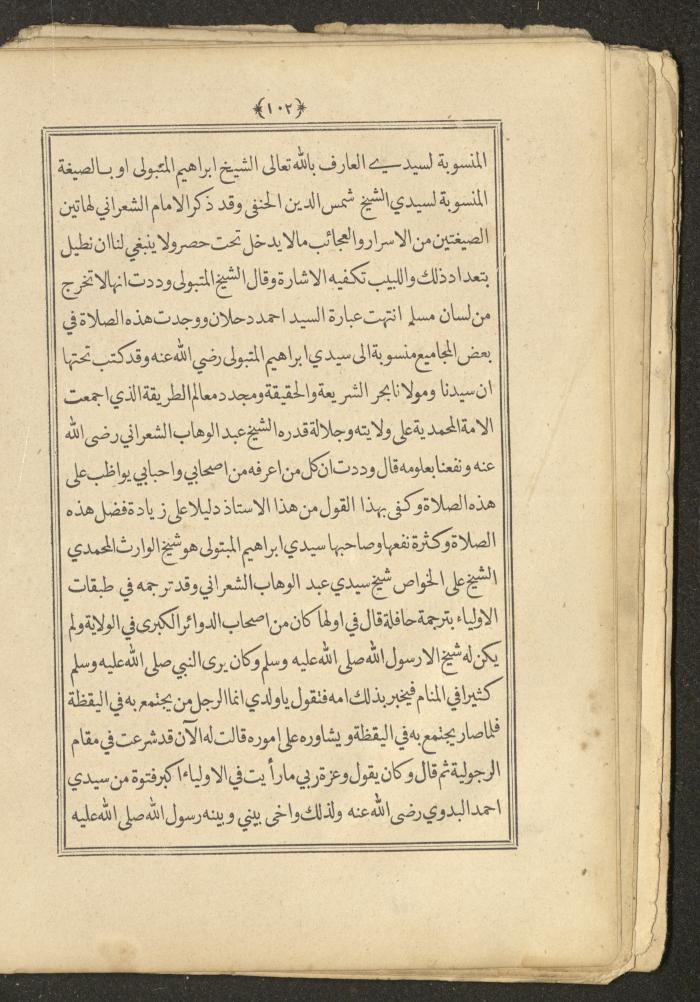 ﴿١٠٢﴾
المنسوبة لسيدي العارف بالله تعالى الشيخ ابراهيم المتبولى او بالصيغة
المنسوبة لسيدي الشيخ شمس الدين الحنفى وقد ذكر الامام الشعراني لهاتين
الصيغتين من الاسرار والعجائب مالا يدخل تحت حصر ولا ينبغي لنا ان نطيل
بتعداد ذلك واللبيب تكفيه الاشارة وقال الشيخ المتبولى وددت انها لا تخرج
من لسان مسلم انتهت عبارة السيد احمد دحلان ووجدت هذه الصلاة في
بعض المجاميع منسوبة الى سيدي ابراهيم المتبولى رضي الله عنه وقد كتب تحتها
ان سيدنا ومولانا بحر الشريعة والحقيقة ومجدد معالم الطريقة الذي اجمعت
الامة المحمدية على ولايته وجلالة قدره الشيخ عبد الوهاب الشعراني رضى الله
عنه ونفعنا بعلومه قال وددت ان كل من اعرفه من اصحابي واحبابي يواظب على
هذه الصلاة وكفى بهذا القول من هذا الاستاذ دليلا على زيادة فضل هذه
الصلاة وكثرة نفعها وصاحبها سيدي ابراهيم المبتولى هو شيخ الوارث المحمدي
الشيخ على الخواص شيخ سيدي عبد الوهاب الشعراني وقد ترجمه في طبقات
الاولياء بترجمة حافلة قال في اولها كان من اصحاب الدوائر الكبرى في الولاية ولم
يكن له شيخ الا رسول الله صلى الله عليه وسلم وكان يرى النبي صلى الله عليه وسلم
كثيرا في المنام فيخبر بذلك امه فتقول ياولدي انما الرجل من يجتمع به في اليقظة
فلما صار يجتمع به في اليقظة ويشاوره على اموره قالت له الآن قد شرعت في مقام
الرجولية ثم قال وكان يقول وعزة ربي ما رأيت في الاولياء اكبر فتوة من سيدي
احمد البدوي رضى الله عنه ولذلك واخى بيني وبينه رسول الله صلى الله عليه